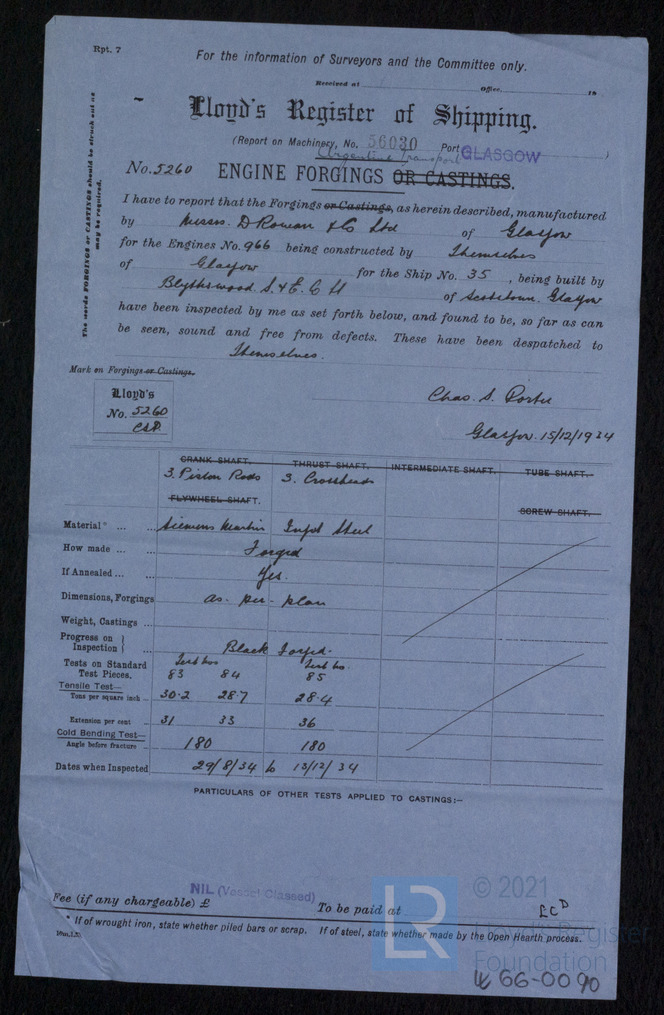 Rpt. 7
For the information of Surveyors and the Committee only.
Received at Office, 19
Lloyd's Register of Shipping.
(Report on Machinery, No. 56030 Port GLASGOW )
Argentine Transport
No. 5260 ENGINE FORGINGS OR CASTINGS.
The words FORGINGS or CASTINGS should be struck out as may be required.
I have to report that the Forgings or Castings, as herein described, manufactured
by Messrs. D Rowan & Co Ltd of Glasgow
for the Engines No. 966 being constructed by Themselves
of Glasgow for the Ship No. 35, being built by
Blythswood S. & E. C Ld of Scotstoun. Glasgow
have been inspected by me as set forth below, and found to be, so far as can
be seen, sound and free from defects. These have been despatched to
Themselves.
Mark on Forgings or Castings.
Lloyd's
No. 5260
CSP
Chas. S. Porter
Glasgow. 15/12/1934
CRANK SHAFT. THRUST SHAFT. INTERMEDIATE SHAFT. TUBE SHAFT.
3. Piston Rods 3. Crossheads
FLYWHEEL SHAFT. SCREW SHAFT.
Material* ... ... Siemens Martin Ingot Steel
How made ... ... Forged
If Annealed ... ... Yes.
Dimensions, Forgings as per plan
Weight, Castings ...
Progress on Inspection } ... Black Forged.
Tests on Standard Test Pieces. Test Nos 83 84 Test No. 85
Tensile Test—
Tons per square inch ... 30.2 28.7 28.4
Extension per cent 31 33 36
Cold Bending Test—
Angle before fracture ... 180 180
Dates when Inspected 29/8/34 to 13/12/34
PARTICULARS OF OTHER TESTS APPLIED TO CASTINGS:—
NIL (Vessel Classed)
Fee (if any chargeable) £ To be paid at
* If of wrought iron, state whether piled bars or scrap. If of steel, state whether made by the Open Hearth process.
LR
© 2021
Lloyd's Register
Foundation
66-0090